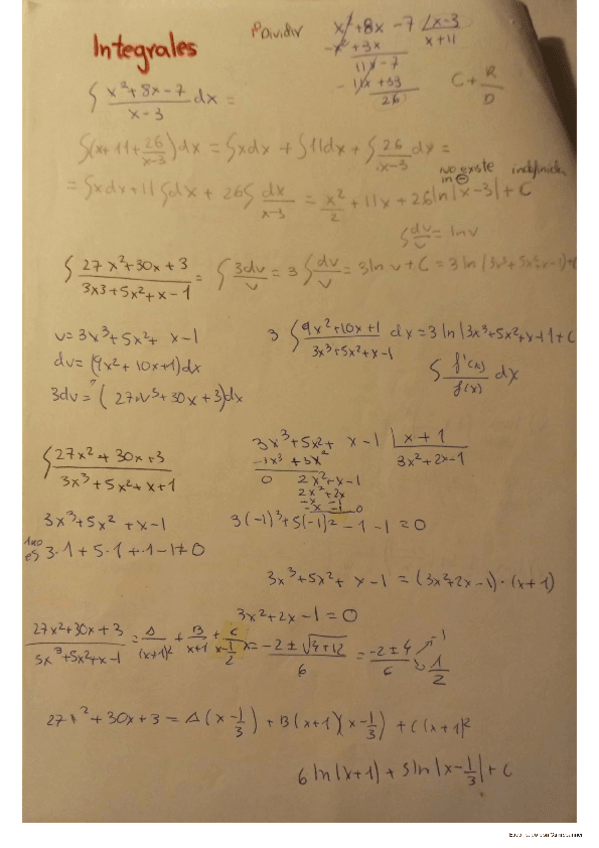 Integrales
Dividir
x² + 8x - 7 | x - 3
-x² + 3x
x + 11
11x - 7
- 11x + 33
26
C + R/D
∫ (x² + 8x - 7)/(x - 3) dx =
∫(x + 11 + 26/(x-3)) dx = ∫x dx + ∫11dx + ∫ 26/(x-3) dx =
no existe
in ⊖
= ∫x dx + 11 ∫dx + 26 ∫ dx/(x-3) = x²/2 + 11x + 26 ln|x-3| + C
∫ dv/v = ln v
∫ (27x² + 30x + 3)/(3x3 + 5x² + x - 1) = ∫ 3dv/v = 3 ∫ dv/v = 3 ln v + C = 3 ln |3x³ + 5x² + x - 1| + C
v = 3x³ + 5x² + x - 1
3 ∫ (9x² + 10x + 1)/(3x³ + 5x² + x - 1) dx = 3 ln |3x³ + 5x² + x - 1| + C
dv = (9x² + 10x + 1)dx
∫ f'(x)/f(x) dx
3dv = (27x³ + 30x + 3)dx
∫ (27x² + 30x + 3)/(3x³ + 5x² + x + 1)
3x³ + 5x² + x - 1 | x + 1
-3x³ + 3x²
3x² + 2x - 1
0 2x² + x - 1
2x² + 2x
-x - 1 0
3x³ + 5x² + x - 1
3(-1)³ + 5(-1)² - 1 - 1 = 0
no es 3·1 + 5·1 + ·1 - 1 ≠ 0
3x³ + 5x² + x - 1 = (3x² + 2x - 1)·(x + 1)
3x² + 2x - 1 = 0
(27x² + 30x + 3)/(3x³ + 5x² + x - 1) = A/(x+1)² + B/(x+1) + C/(x - 1/2)
x = (-2 ± √(4 + 12))/6 = (-2 ± 4)/6 → -1
1/2
27x² + 30x + 3 = A(x - 1/3) + B(x+1)(x - 1/3) + C(x+1)²
6 ln|x+1) + 3 ln|x - 1/3| + C